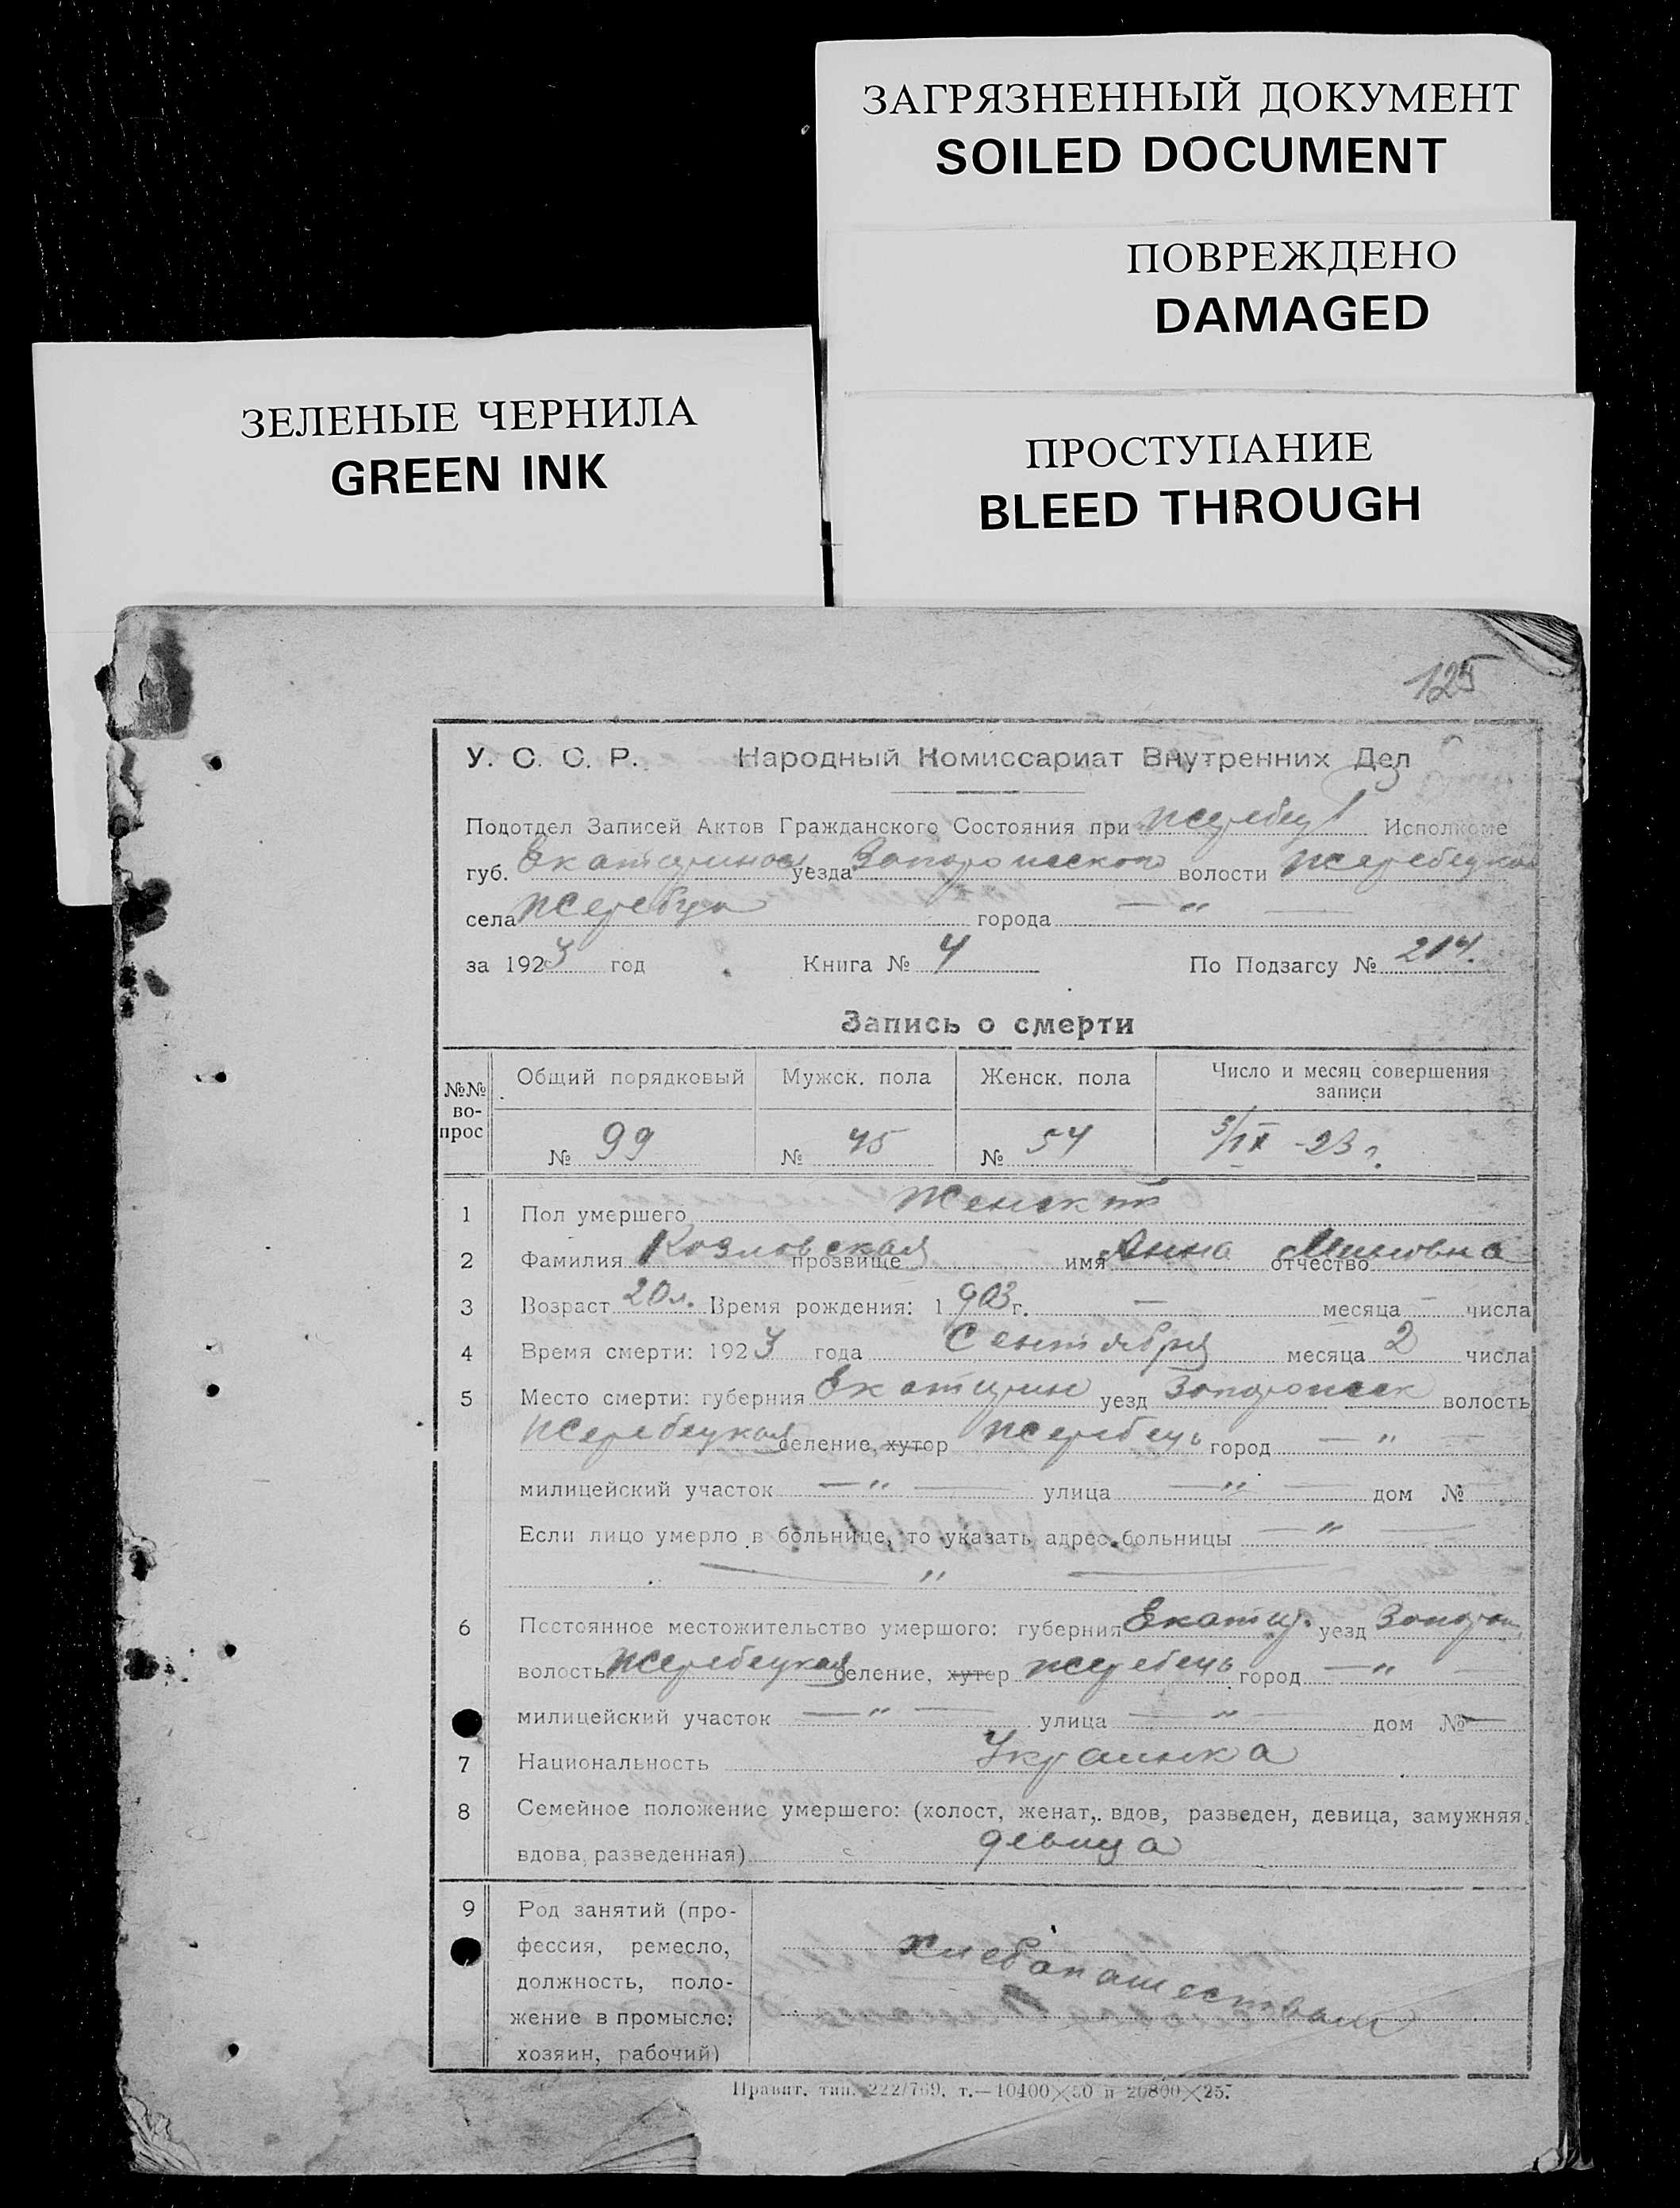 ЗАГРЯЗНЕННЫЙ ДОКУМЕНТ
SOILED DOCUMENT
ПОВРЕЖДЕНО
DAMAGED
ЗЕЛЕНЫЕ ЧЕРНИЛА
GREEN INK
ПРОСТУПАНИЕ
BLEED THROUGH
125
У. С. С. Р. Народный Комиссариат Внутренних Дел
Подотдел Записей Актов Гражданского Состояния при Исполкоме
губ. Екатеринос. уезда Запорожского волости Жеребецкой
села Жеребца города — „ —
за 1923 год Книга № 4 По Подзагсу № 214.
Запись о смерти
№№ во-прос Общий порядковый Мужск. пола Женск. пола Число и месяц совершения записи
№ 99 № 45 № 54 3/IX -23 г.
1 Пол умершего Женский
2 Фамилия Козловская прозвище имя Анна отчество
3 Возраст 20 л. Время рождения: 1903 г. — месяца — числа
4 Время смерти: 1923 года Сентября месяца 2 числа
5 Место смерти: губерния Екатерин уезд Запорожск волость
Жеребецкая селение, хутор Жеребець город — „ —
милицейский участок — „ — улица — „ — дом №
Если лицо умерло в больнице, то указать адрес больницы — „ —
— „ —
6 Постоянное местожительство умершого: губерния Екатер. уезд Запорож
волость Жеребецкая селение, хутор Жеребець город — „ —
милицейский участок — „ — улица — „ — дом № —
7 Национальность Украинка
8 Семейное положение умершего: (холост, женат, вдов, разведен, девица, замужняя,
вдова, разведенная) девица
9 Род занятий (про-
фессия, ремесло,
должность, поло-
жение в промысле:
хозяин, рабочий)
хлебопашеством
Правит. тип. 222/769. т.—10400×50 и 20800×25.